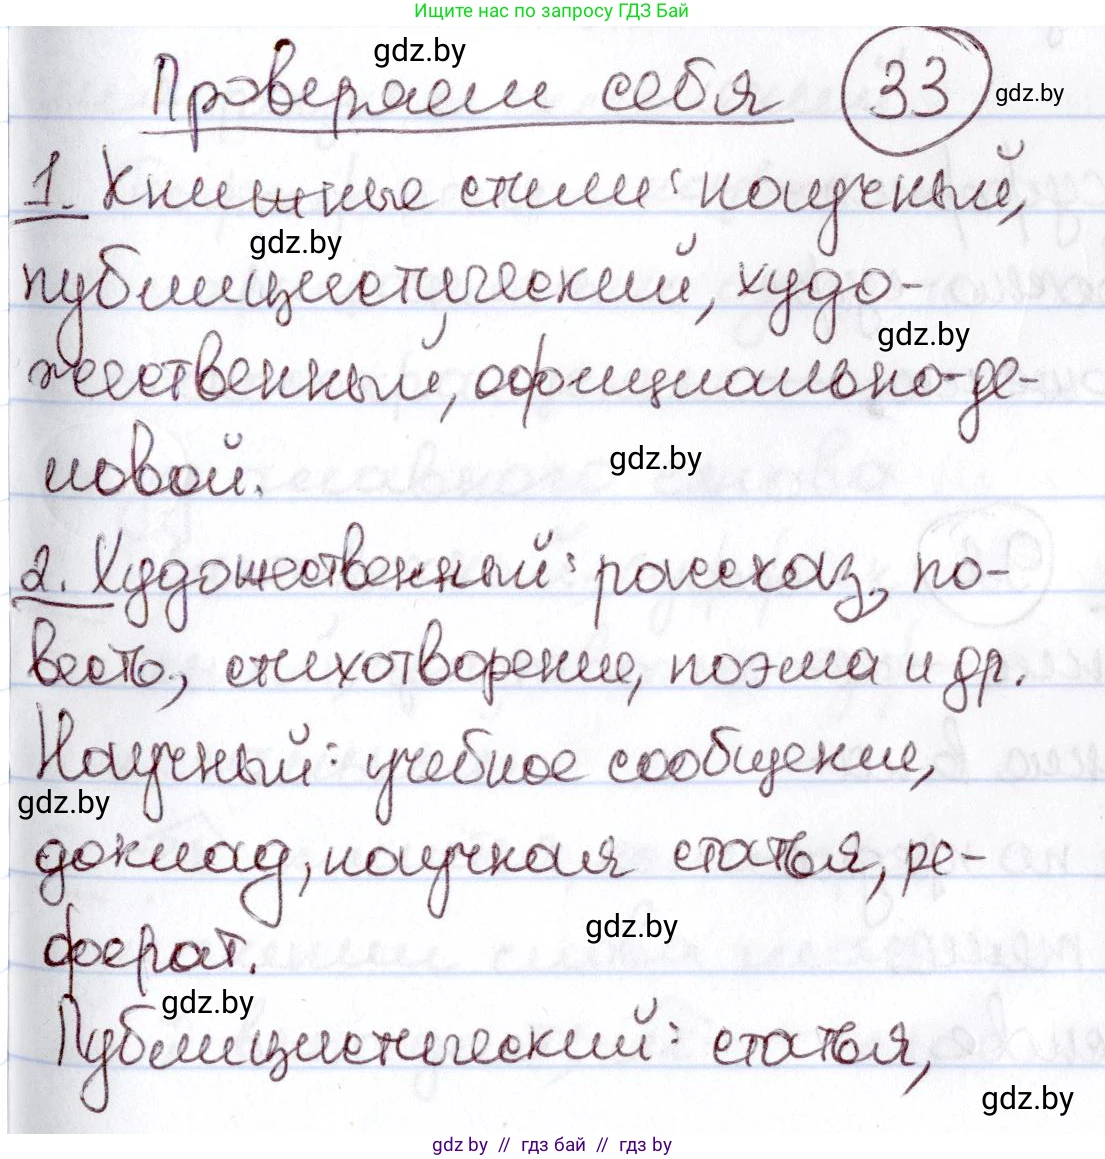 Ищите нас по запросу ГДЗ Бай
gdz.by
Проверяем себя 33 gdz.by
1. Книжные стили: научный,
gdz.by
публицистический, худо-
gdz.by
жественный, официально-де-
ловой. gdz.by
2. Художественный: рассказ, по-
весть, стихотворение, поэма и др.
Научный: учебное сообщение,
gdz.by
доклад, научная статья, ре-
gdz.by
ферат.
gdz.by
Публицистический: статья,
gdz.by
gdz.by // гдз бай // гдз by